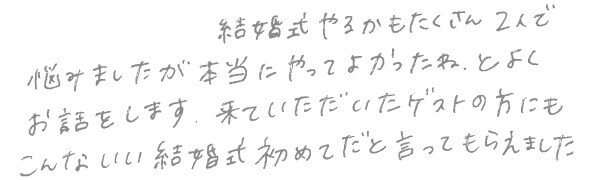 結婚式やるかもたくさん2人で
悩みましたが本当にやってよかったね、とよく
お話をします、来ていただいたゲストの方にも
こんないい結婚式初めてだと言ってもらえました